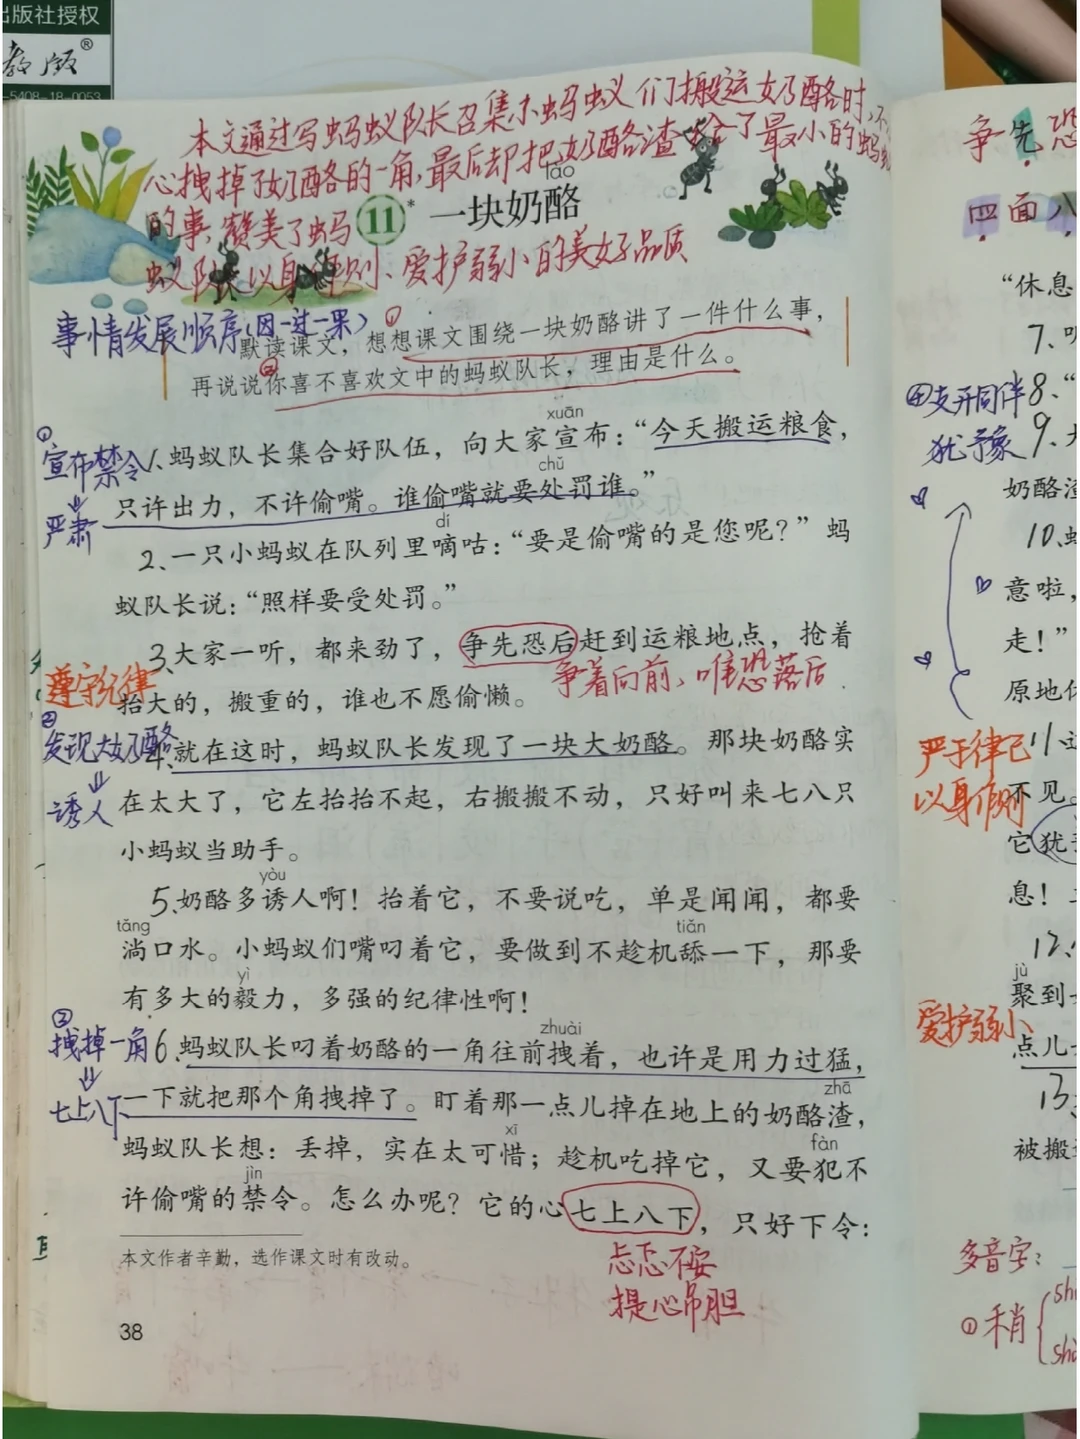 出版社授权
教版®
5408-18-0053
本文通过写蚂蚁队长召集小蚂蚁们搬运奶酪时,不
心拽掉了奶酪的一角,最后却把奶酪渣给了最小的蚂蚁
的事,赞美了蚂
蚁队长以身作则、爱护弱小的美好品质
lào
11* 一块奶酪
事情发展顺序(因—过—果)
① 默读课文,想想课文围绕一块奶酪讲了一件什么事,
② 再说说你喜不喜欢文中的蚂蚁队长,理由是什么。
① 宣布禁令
严肃
xuān
1、蚂蚁队长集合好队伍,向大家宣布:“今天搬运粮食,
chǔ
只许出力,不许偷嘴。谁偷嘴就要处罚谁。”
dí
2、一只小蚂蚁在队列里嘀咕:“要是偷嘴的是您呢?”蚂
蚁队长说:“照样要受处罚。”
3、大家一听,都来劲了,争先恐后赶到运粮地点,抢着
争着向前,唯恐落后.
遵守纪律
抬大的,搬重的,谁也不愿偷懒。
② 发现大奶酪
诱人
4、就在这时,蚂蚁队长发现了一块大奶酪。那块奶酪实
在太大了,它左抬抬不起,右搬搬不动,只好叫来七八只
小蚂蚁当助手。
yòu
5、奶酪多诱人啊!抬着它,不要说吃,单是闻闻,都要
tǎng tiǎn
淌口水。小蚂蚁们嘴叼着它,要做到不趁机舔一下,那要
yì
有多大的毅力,多强的纪律性啊!
③ 拽掉一角
七上八下
zhuài
6、蚂蚁队长叼着奶酪的一角往前拽着,也许是用力过猛,
zhā
一下就把那个角拽掉了。盯着那一点儿掉在地上的奶酪渣,
xī fàn
蚂蚁队长想:丢掉,实在太可惜;趁机吃掉它,又要犯不
jìn
许偷嘴的禁令。怎么办呢?它的心七上八下,只好下令:
忐忑不安
提心吊胆
本文作者辛勤,选作课文时有改动。
38
争先恐
四面八
“休息
7、
④支开同伴
8、“
犹豫
9、
奶酪渣
10、
意啦,
走!”
原地休
严于律己
11、
以身作则
不见。
它犹
息!
12、
jù
聚到
爱护弱小
点儿
13、
被搬
多音字:
①稍
shā